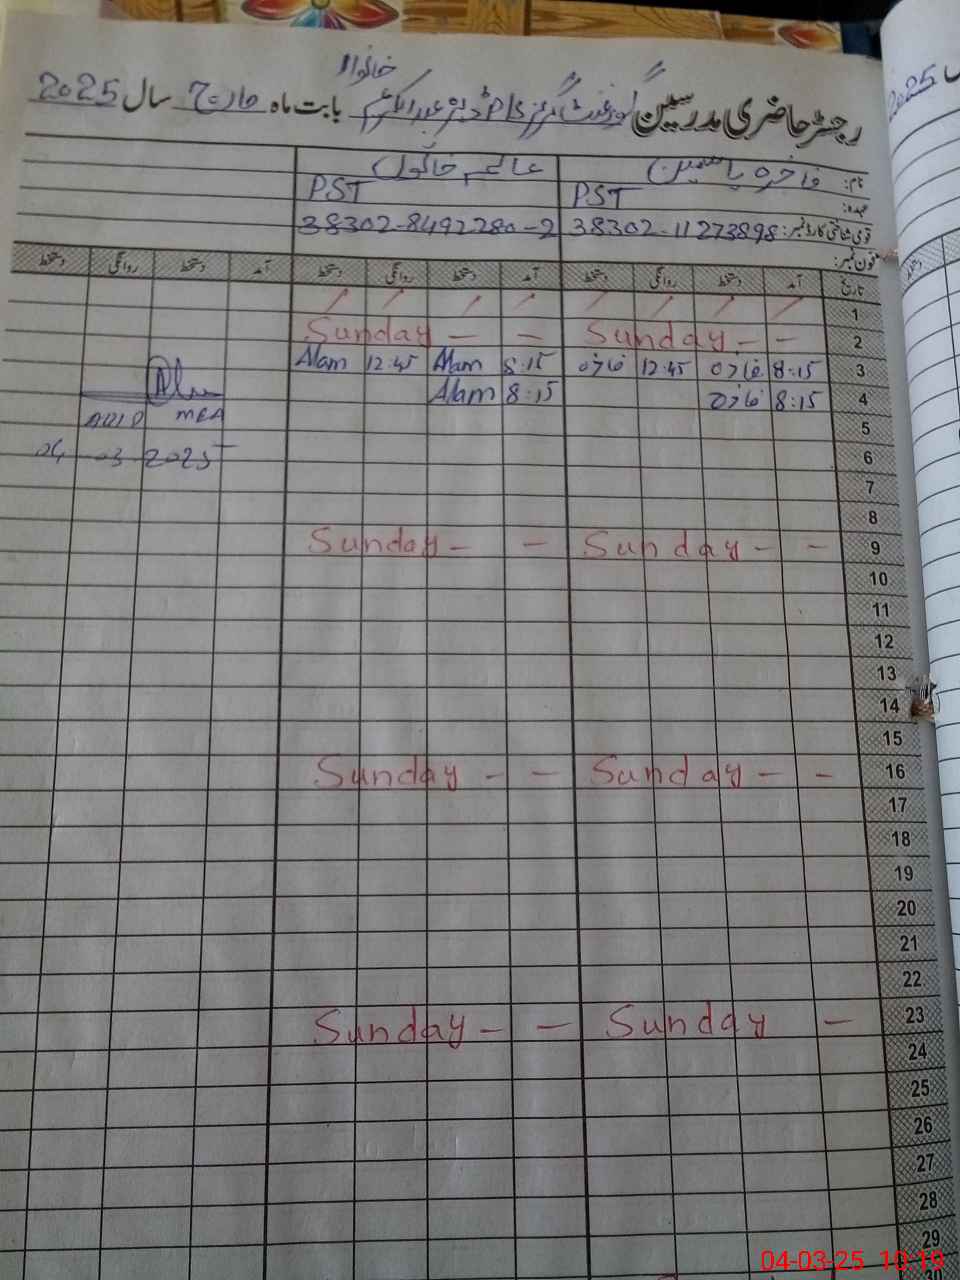 خانوالا
رجسٹر حاضری مدرسین گورنمنٹ گرلز بابت ماہ مارچ سال 2025
نام: فاخرہ یاسمین عالم خاتون
عہدہ: PST PST
قومی شناختی کارڈ نمبر: 38302-11273898 38302-8492280-2
فون نمبر:
تاریخ آمد دستخط روانگی دستخط آمد دستخط روانگی دستخط آمد دستخط روانگی دستخط
1
2 Sunday - - Sunday - -
3 8:15 فاخرہ 12:45 فاخرہ 8:15 Alam 12:45 Alam
4 8:15 فاخرہ 8:15 Alam
MEA
5
6 04-03-2025
7
8
9 Sunday - - Sunday - -
10
11
12
13
14
15
16 Sunday - - Sunday - -
17
18
19
20
21
22
23 Sunday - Sunday - -
24
25
26
27
28
29
04-03-25 10:19